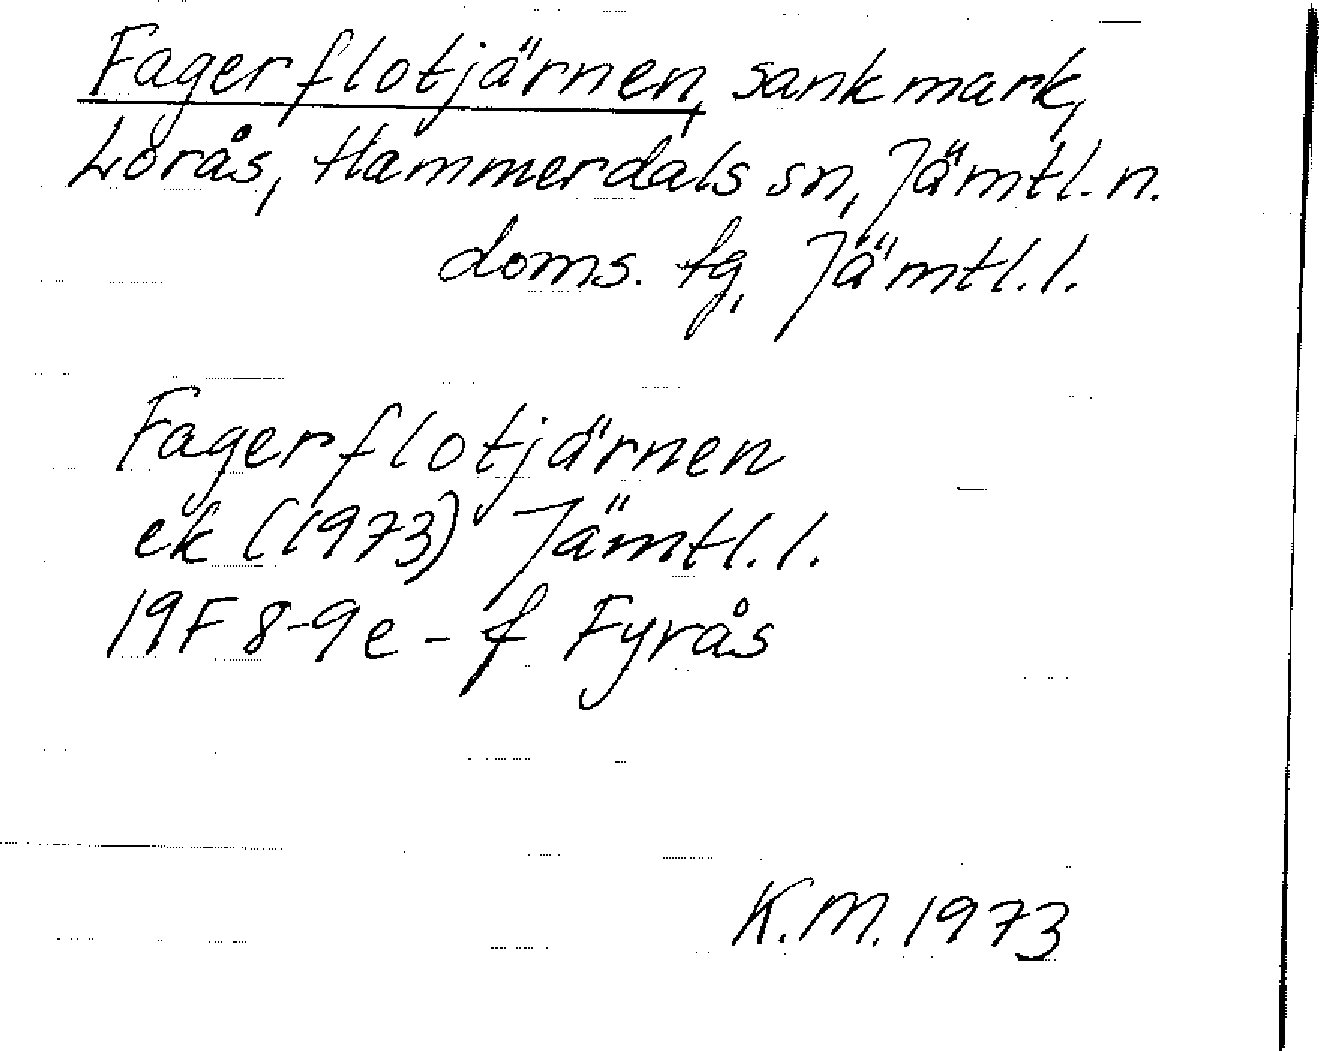 Fagerflotjärnen, sankmark,
Lorås, Hammerdals sn, Jämtl. n.
doms. tg, Jämtl. l.
Fagerflotjärnen
ek (1973) Jämtl. l.
19F 8-9e - f Fyrås
K.M. 1973